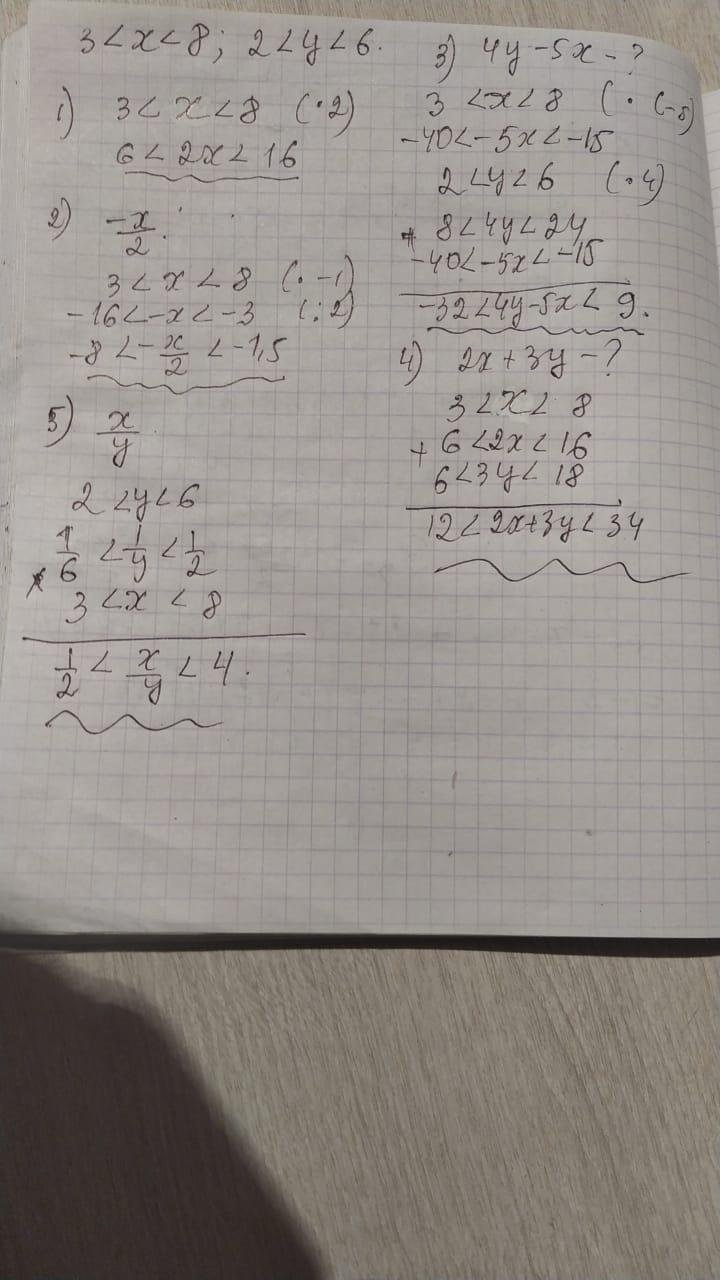 3 < x < 8; 2 < y < 6.
1) 3 < x < 8 (·2)
6 < 2x < 16
2) -x/2.
3 < x < 8 (· -1)
-16 < -x < -3 (:2)
-8 < -x/2 < -1,5
5) x/y
2 < y < 6
1/6 < 1/y < 1/2
× 3 < x < 8
1/2 < x/y < 4.
3) 4y - 5x - ?
3 < x < 8 (· (-5)
-40 < -5x < -15
2 < y < 6 (·4)
+ 8 < 4y < 24
-40 < -5x < -15
-32 < 4y - 5x < 9.
4) 2x + 3y - ?
3 < x < 8
+ 6 < 2x < 16
6 < 3y < 18
12 < 2x + 3y < 34